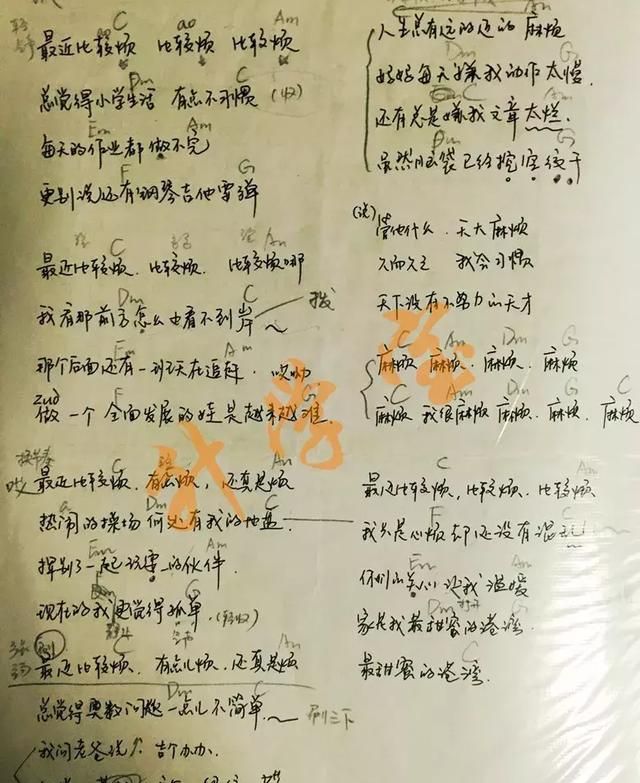 C ao Am
最近比较烦 比较烦 比较烦
Dm C
总觉得小学生活 有点不习惯 (收)
Em Am
每天的作业都做不完
F G
更别说还有钢琴吉他要弹
C Am
最近比较烦. 比较烦. 比较烦哪
Dm C
我看那前方怎么也看不到岸 拨
Em Am
那个后面还有一班天才追赶. 哎哟
zuò F G
做一个全面发展的娃是越来越难.
C Am
最近比较烦. 有点烦, 还真是烦
a Dm C
热闹的操场 何处有我的地盘
Em Am
挥别了一起玩耍的伙伴.
Dm
现在的我更觉得孤单. (轻收)
C Am
最近比较烦. 有点儿烦. 还真是烦
Dm C
总觉得奥数问题一点儿不简单. 刷三下
我问老爸说
人生总有远的近的麻烦
Dm G
妈妈每天嫌我动作太慢.
C Am
还有总是嫌我文章太烂.
Dm
虽然脑袋已经挖空绞干
(说) 管他什么. 天大麻烦
久而久之 我会习惯
天下没有不努力的天才
C Am Dm G
麻烦 麻烦. 麻烦. 麻烦
C Am Dm G C
麻烦 我很麻烦 麻烦. 麻烦. 麻烦
C Am
最近比较烦, 比较烦. 比较烦
F C
我只是心烦却还没有混乱
Em Am
你们的关心让我温暖
Dm G
家是我最甜蜜的港湾
C
最甜蜜的港湾.